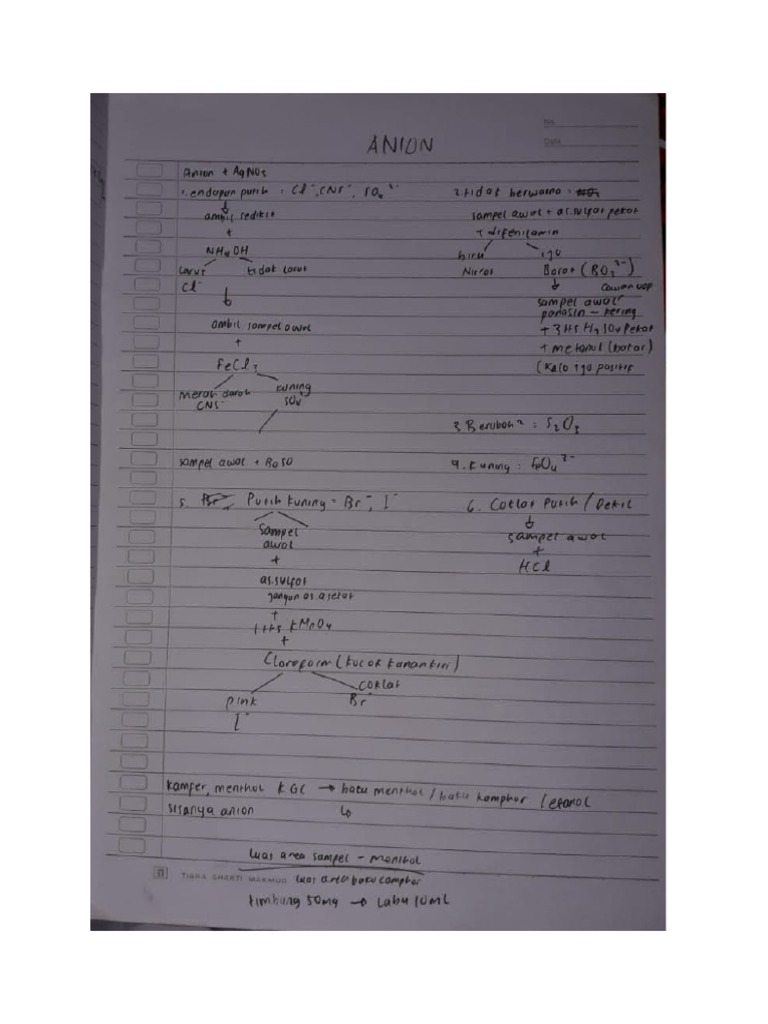 No
Date
ANION
Anion + AgNO3
1. endapan putih : Cl⁻, CNS⁻, SO4²⁻
ambil sedikit
+
NH4OH
Larut
tidak larut
Cl⁻
ambil sampel awal
+
FeCl3
merah darah
kuning
CNS⁻
SO4
sampel awal + BaSO
2. tidak berwarna :
sampel awal + as. sulfat pekat
+ difenilamin
biru
Nitrat
Borat (BO3³⁻)
cawan uap
sampel awal
panasin - kering
+ 3 tts H2SO4 pekat
+ metanol (bakar)
(Kalo ijo positif
3. Berubah² : S2O3
4. Kuning : PO4³⁻
5. Putih kuning = Br⁻, I⁻
sampel
awal
+
as. sulfat
jangan as. asetat
+
1 tts KMnO4
+
Cloroform (kocok kanan kiri)
pink
coklat
I⁻
Br⁻
6. Coklat Putih /
sampel awal
+
HCl
kamfer, menthol KGC → baku menthol / baku kamphor / etanol
sisanya anion
luas area sampel - menthol
TIARA SHAKTI MAKMUR
luas area baku camphor
timbang 50mg → Labu 10mL